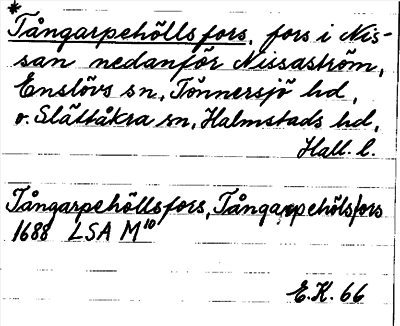 *
Tångarpehölls fors, fors i Nis-
san nedanför Nissaström,
Enslövs sn, Tönnersjö hd,
o. Slättåkra sn, Halmstads hd,
Hall. l.
Tångarpehöllsfors, Tångarpehölsfors
1688 LSA M¹⁰
E.K. 66